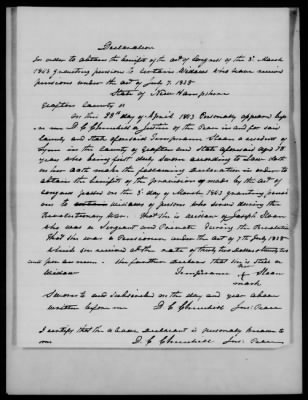 Declaration
In order to obtain the benefit of the act of Congress of the 3d March
1843 granting pensions to certain Widows who have received
pensions under the act of July 7. 1838
State of New Hampshire
Grafton County ss
On this 28th day of April 1843 Personally appeared before
me D C Churchill a Justice of the Peace in and for said
County and State aforesaid Temperance Sloan a resident of
Lyme in the County of Grafton and State aforesaid aged 78
years who being first duly sworn according to Law doth
on her oath make the following declaration in order to
obtain the benefit of the provision made by the act of
Congress passed on the 3d day of March 1843 granting pensi
ons to widows of persons who served during the
Revolutionary War. That she is widow of Joseph Sloan
who was a Sergeant and Private during the Revolution
That she was a Pensioner under the act of 7th July 1838
which she received at the rate of thirty two dollars thirty two
cents per annum. She further declares that she is still a
Widow Temperance her Sloan
mark
Sworn to and subscribed on the day and year above
written before me D C Churchill Jus. Peace
I certify that the above declarant is personally known to
me D. C Churchill Jus. Peace